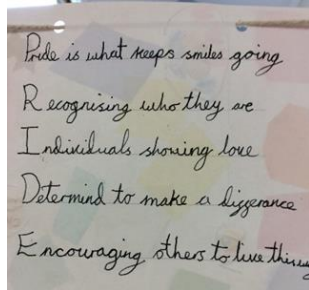 Pride is what keeps smiles going
Recognising who they are
Individuals showing love
Determind to make a differance
Encouraging others to live